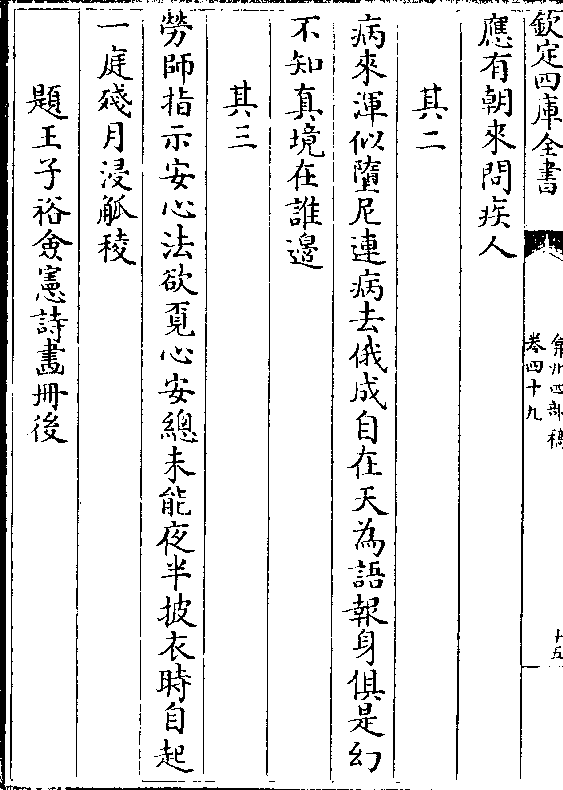 欽定四庫全書
弇州四部稿
卷四十九
十五
應有朝來問疾人
其二
病來渾似墮尼連病去俄成自在天為語報身俱是幻
不知真境在誰邊
其三
勞師指示安心法欲覓心安總未能夜半披衣時自起
一庭殘月浸觚稜
題王子裕僉憲詩畫冊後